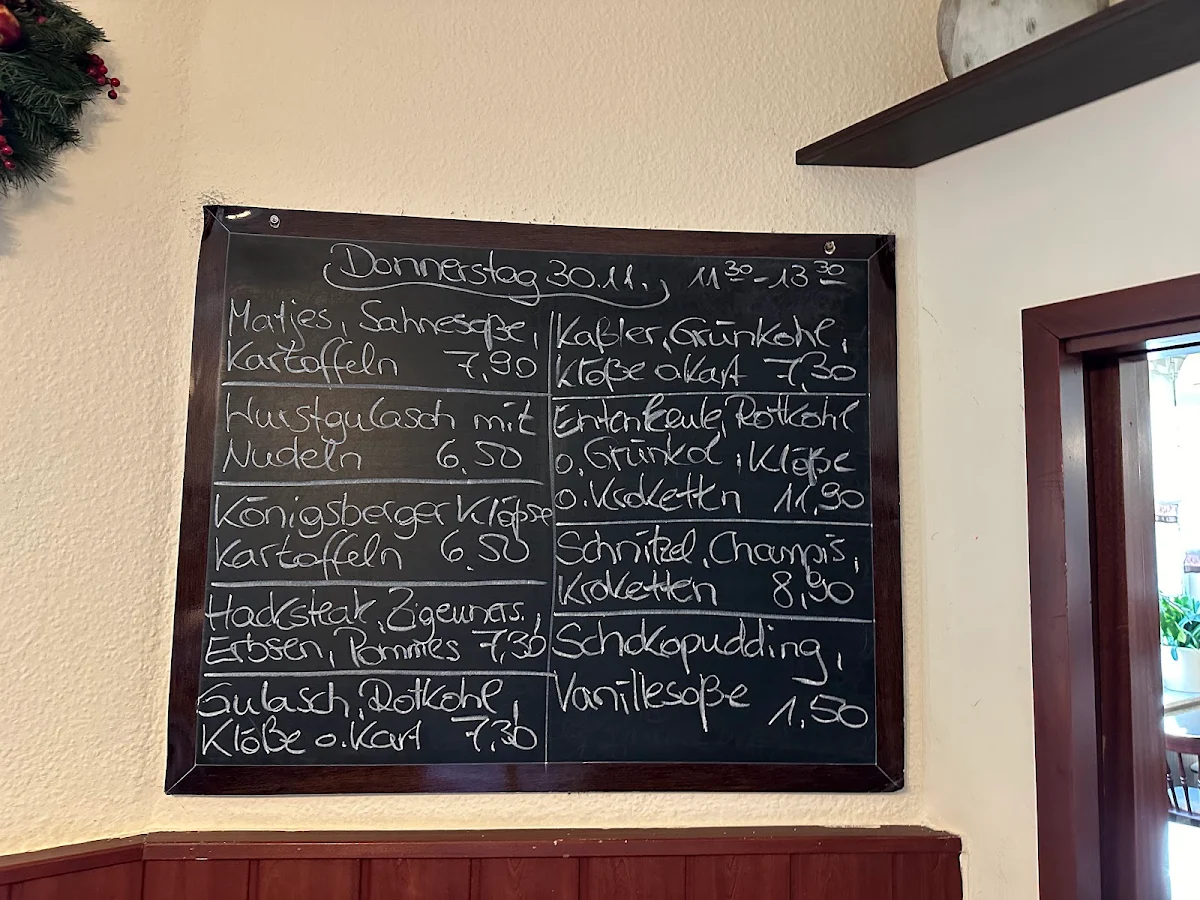 Donnerstag 30.11., 11 30 - 13 30
Matjes, Sahnesoße,
Kartoffeln 7,90
Wurstgulasch mit
Nudeln 6,50
Königsberger Klöpse
Kartoffeln 6,50
Hacksteak, Zigeuners.,
Erbsen, Pommes 7,30
Gulasch, Rotkohl,
Klöße o. Kart 7,30
Kaßler, Grünkohl,
Klöße o Kart 7,30
Entenkeule, Rotkohl
o. Grünkol, Klöße
o. Kroketten 11,90
Schnitzel, Champis,
Kroketten 8,90
Schokopudding,
Vanillesoße 1,50